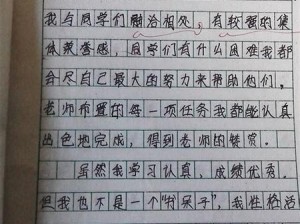 我与同学们融洽相处，有较强的集
体荣誉感，同学们有什么困难我都
会尽自己最大的努力来帮助他们，
老师布置的每一项任务我都能认真
出色地完成，得到老师的赞赏。
虽然我学习认真，成绩优秀。
但我也不是一个“书呆子”，我性格活